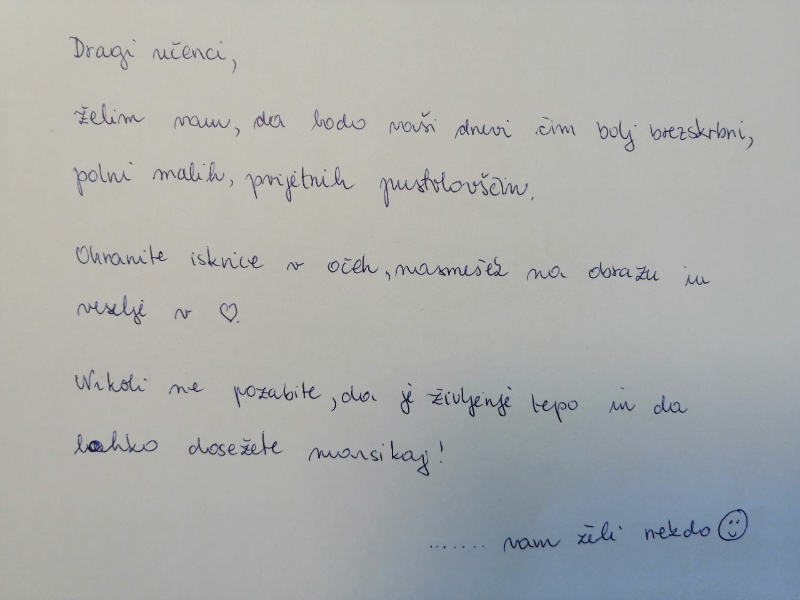 Dragi učenci,
želim vam, da bodo vaši dnevi čim bolj brezskrbni,
polni malih, prijetnih pustolovščin.
Ohranite iskrice v očeh, nasmešek na obrazu in
veselje v ♡.
Nikoli ne pozabite, da je življenje lepo in da
lahko dosežete marsikaj!
....... vam želi nekdo ☺